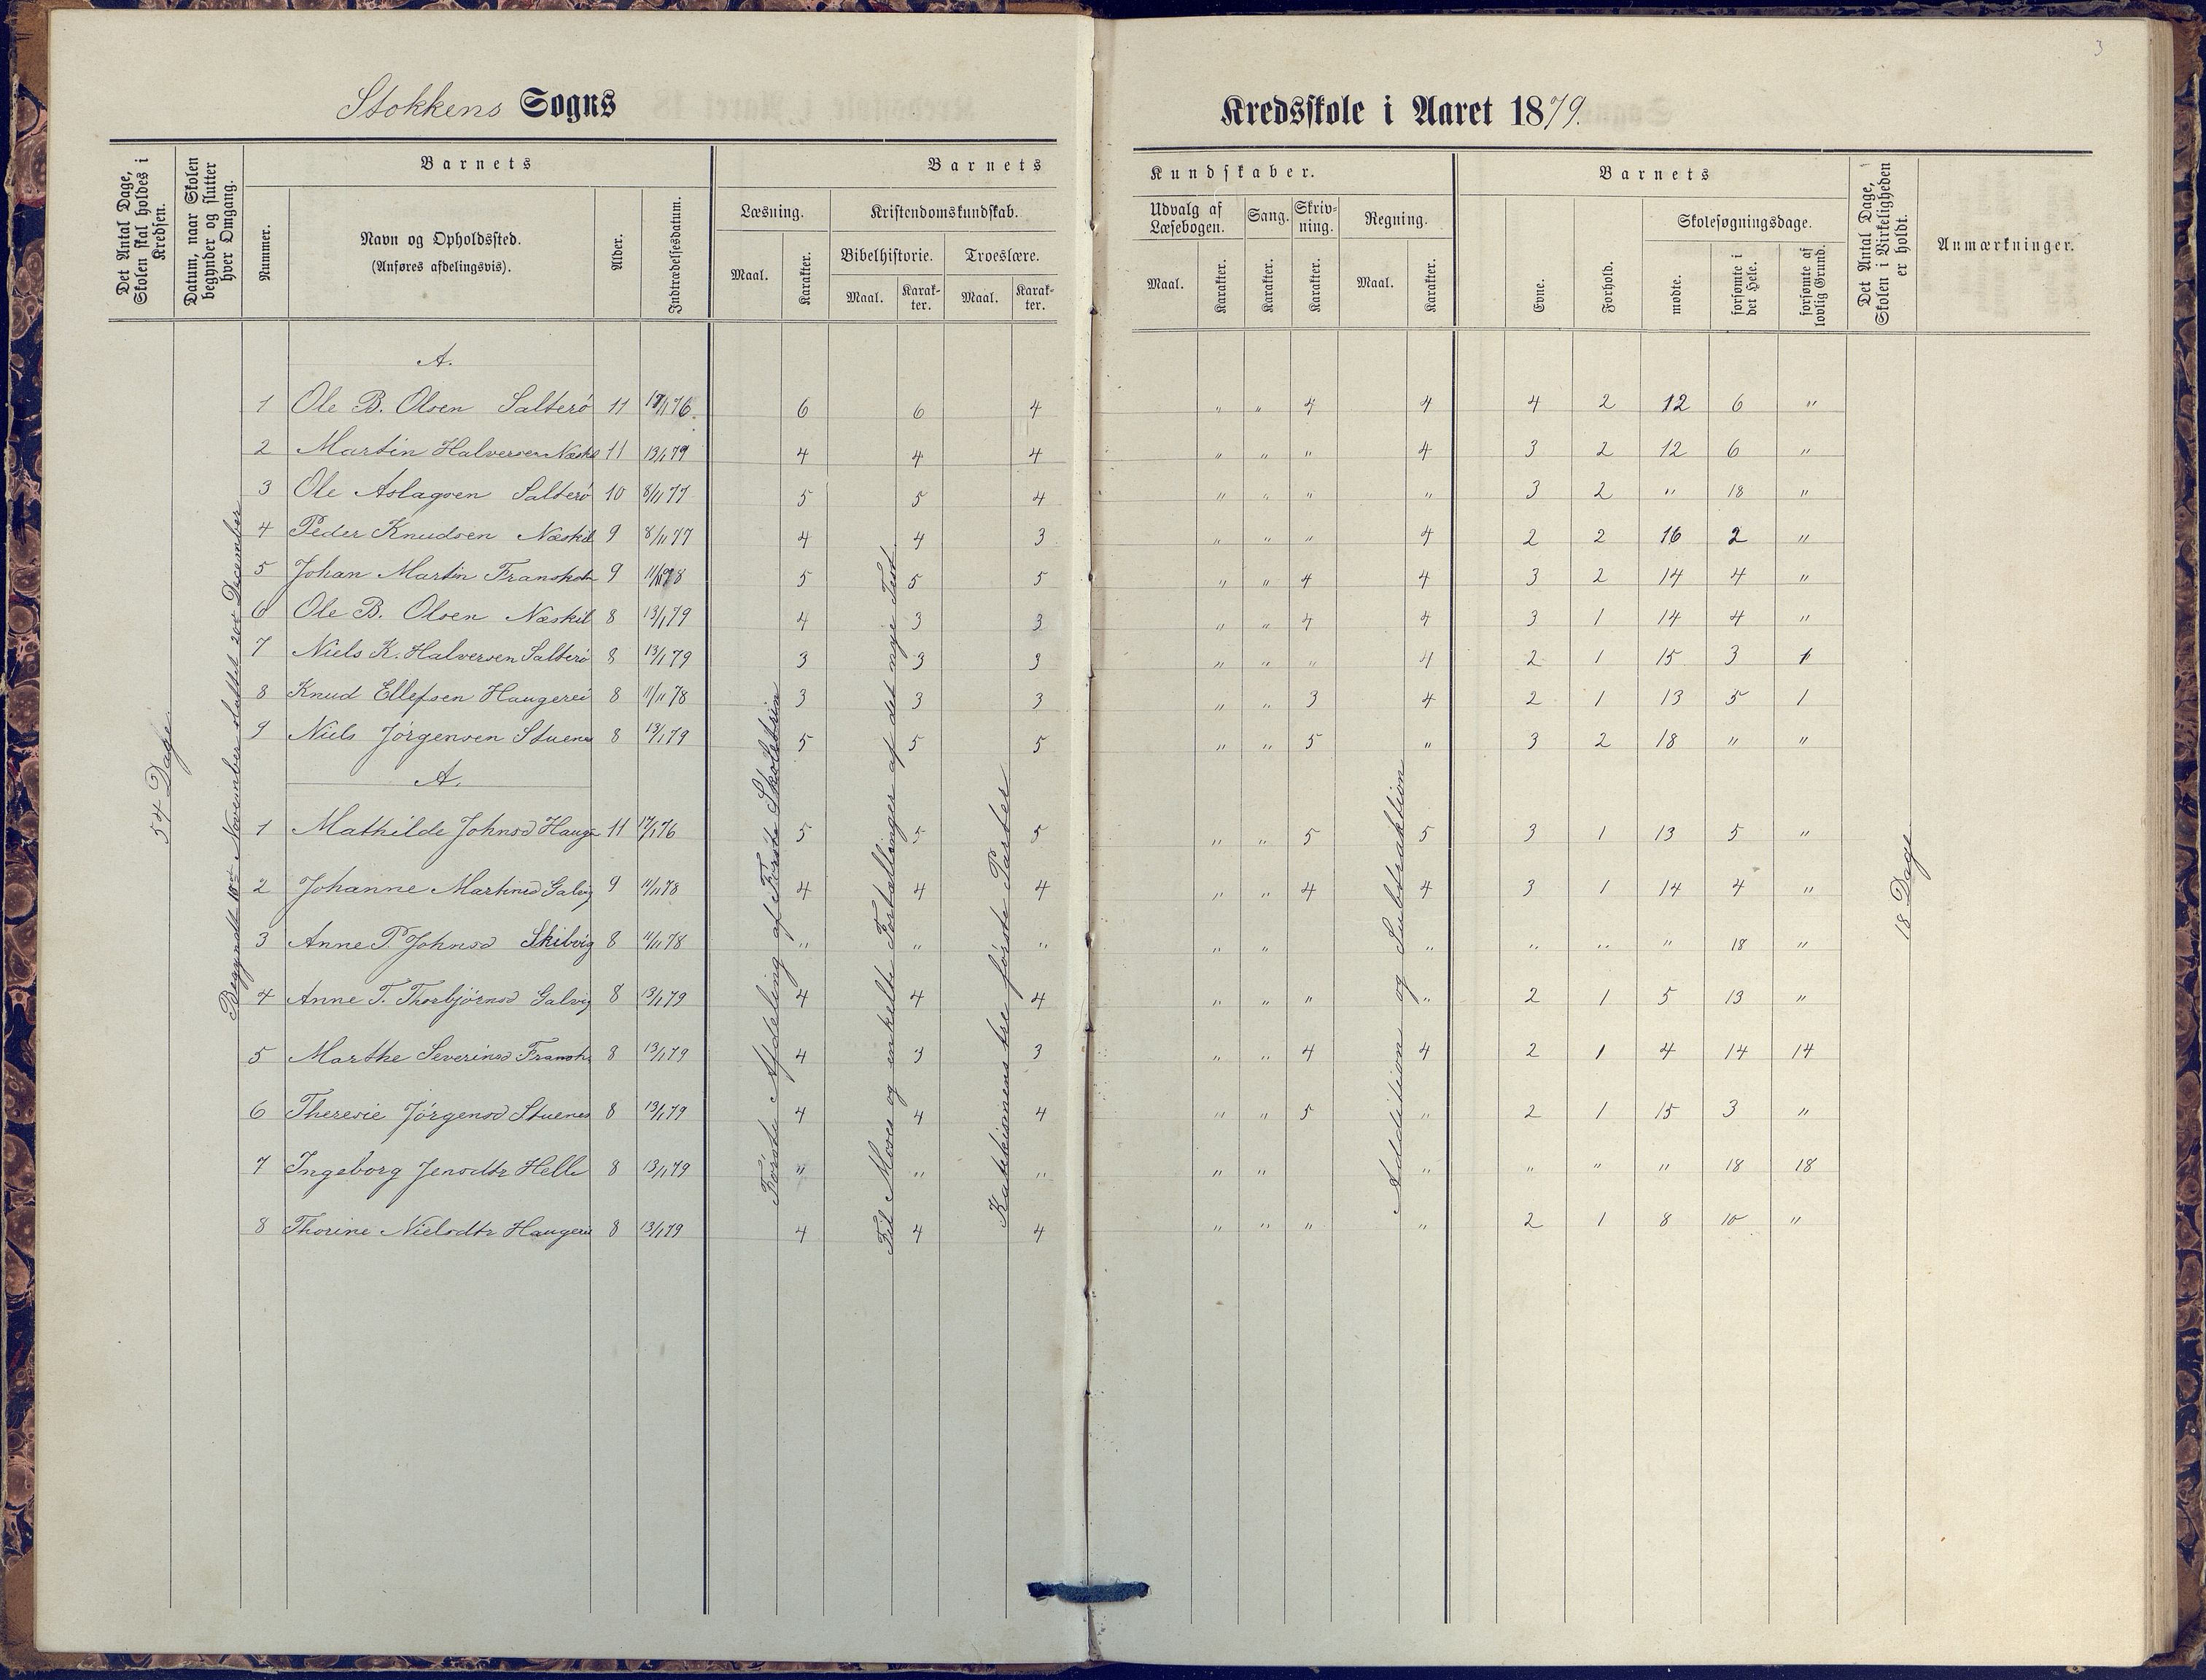 3
Stokkens Sogns Kredsskole i Aaret 1879.
Det Antal Dage, Skolen skal holdes i Kredsen.
Datum, naar Skolen begynder og slutter hver Omgang.
Barnets
Nummer.
Navn og Opholdssted.
(Anføres afdelingsvis).
Alder.
Indtrædelsesdatum.
Barnets Kundskaber.
Læsning. Kristendomskundskab. Udvalg af Læsebogen. Sang. Skriv-ning. Regning.
Bibelhistorie. Troeslære.
Maal. Karakter. Maal. Karak-ter. Maal. Karak-ter. Maal. Karakter. Karakter. Karakter. Maal. Karakter.
Barnets
Evne. Forhold. Skolesøgningsdage.
mødte. forsømte i det Hele. forsømte af lovlig Grund.
Det Antal Dage, Skolen i Virkeligheden er holdt.
Anmærkninger.
54 Dage.
Begyndte 18de November sluttet 20de December
Første Afdeling af Første Skoletrin
Til Moses og enkelte Fortællinger af det nye Test.
Katekismens tre første Parter
Addition og Subtraktion
18 Dage
A.
1 Ole B. Olsen Salterö 11 6 6 4 " " 4 4 4 2 12 6 "
2 Martin Halversen 11 13/1 79 4 4 4 " " " 4 3 2 12 6 "
3 Ole Aslagsen Salterö 10 8/11 77 5 5 4 " " " " 3 2 " 18 "
4 Peder Knudsen Næskil 9 8/11 77 4 4 3 " " " 4 2 2 16 2 "
5 Johan Martin 9 5 5 5 " " 4 4 3 2 14 4 "
6 Ole B. Olsen Næskil 8 13/1 79 4 3 3 " " 4 4 3 1 14 4 "
7 Niels K. Halversen Salterö 8 13/1 79 3 3 3 " " " 4 2 1 15 3 1
8 Knud Ellefsen Haugerei 8 11/11 78 3 3 3 " " 3 4 2 1 13 5 1
9 Niels Jörgensen Stuenes 8 13/1 79 5 5 5 " " 5 " 3 2 18 " "
A.
1 Mathilde Johnsd 11 17/1 76 5 5 5 " " 5 5 3 1 13 5 "
2 Johanne Martinsd 9 11/11 78 4 4 4 " " 4 4 3 1 14 4 "
3 Anne P. Johnsd Skibvig 8 11/11 78 " " " " " " " " " 18 "
4 Anne T. Thorbjörnsd Galvig 8 13/1 79 4 4 4 " " " " 2 1 5 13 "
5 Marthe Severinsd 8 13/1 79 4 3 3 " " 4 4 2 1 4 14 14
6 Theresie Jörgensd Stuenes 8 13/1 79 4 4 4 " " 5 " 2 1 15 3 "
7 Ingeborg Jensdtr Helle 8 13/1 79 " " " " " " " " " 18 18
8 Thorine Nielsdtr Haugerei 8 13/1 79 4 4 4 " " " " 2 1 8 10 "